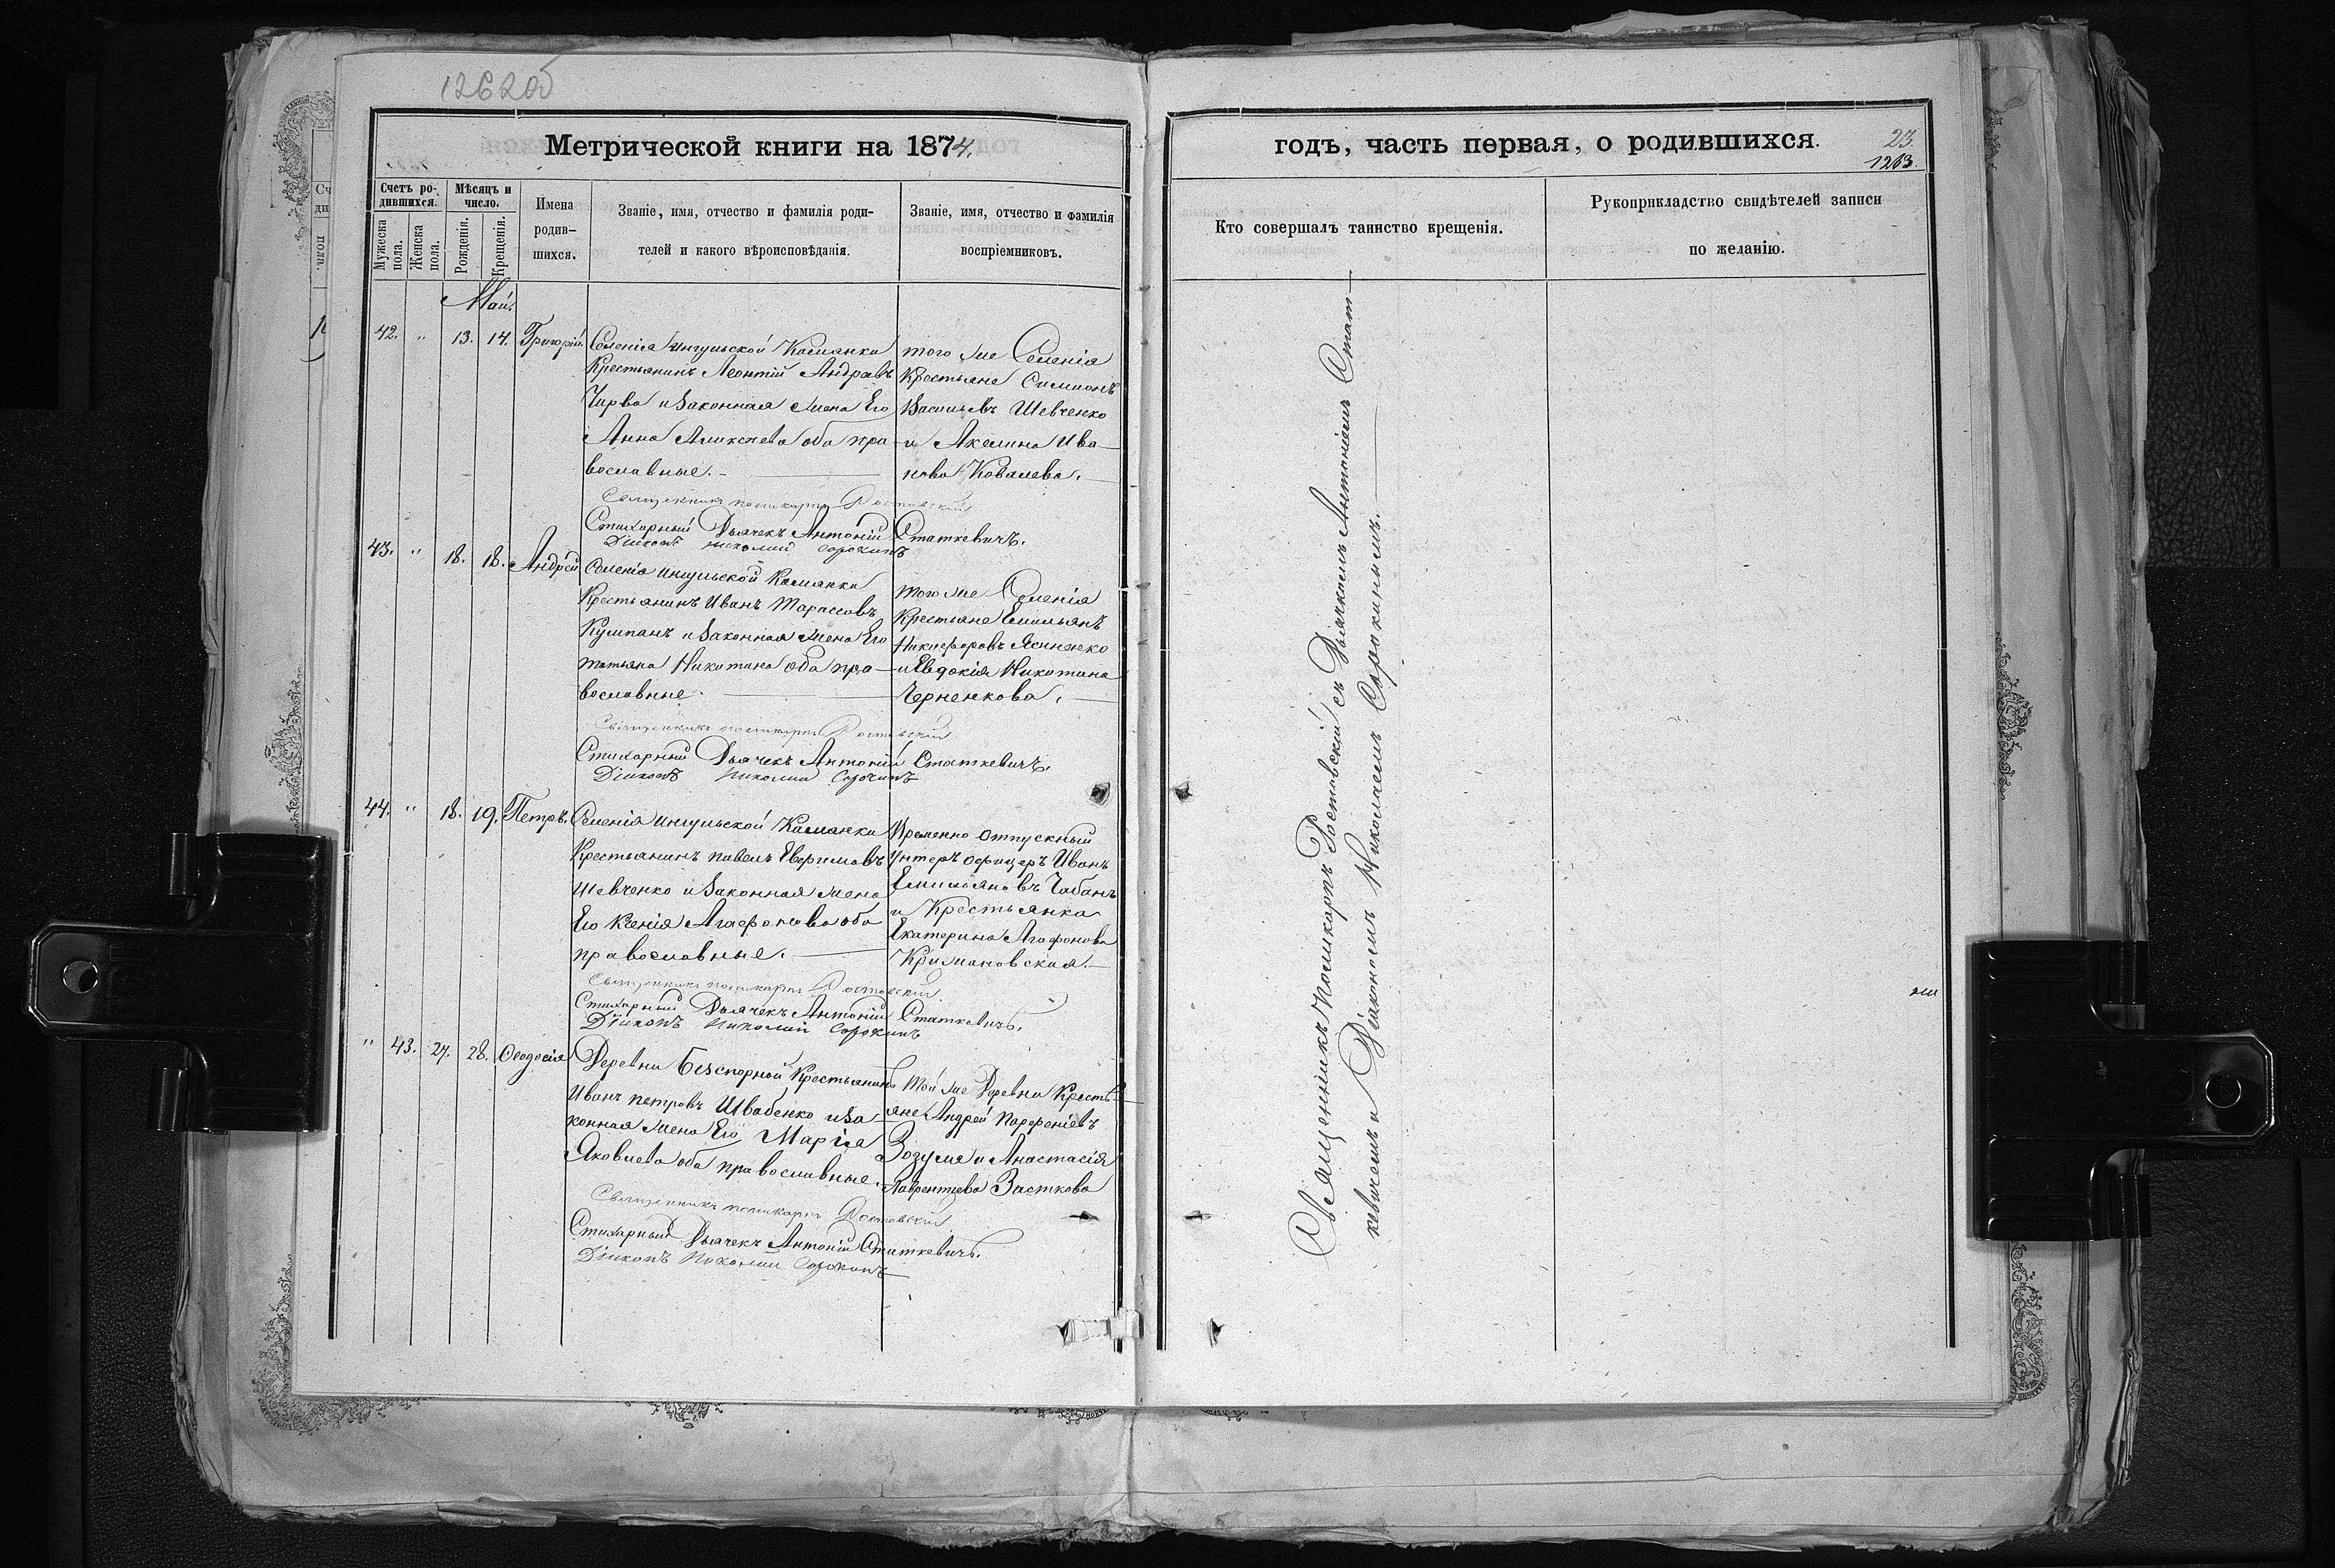 1262об
Метрической книги на 1874.
Счетъ ро-
дившихся.
Мѣсяцъ и
число.
Мужеска пола.
Женска пола.
Рожденія.
Крещенія.
Имена
родив-
шихся.
Званіе, имя, отчество и фамилія роди-
телей и какого вѣроисповѣданія.
Званіе, имя, отчество и фамилія
воспріемниковъ.
Май.
42. " 13. 14. Григорій.
Селенія Ингульской Каменки
Крестьянинъ Леонтій Андреевъ
и законная жена Его
Анна Аликсѣева оба пра-
вославные.
того же Селенія
Крестьяне Симионъ
Васильевъ Шевченко
и Акелина Ива-
нова Ковалева.
Священникъ Поликарпъ Ростовскій
Стихарный Дьячекъ Антоній Статкевичъ.
Діаконъ Николай Сорокинъ
43. " 18. 18. Андрей
Селенія Ингульской Каменки
Крестьянинъ Иванъ Тарассовъ
Кумпанъ и законная жена Его
татьяна Никитина оба пра-
вославные.
того же Селенія
Крестьяне Емильянъ
Никифоровъ Ясиненко
и Евдокія Никитина
Черненкова.
Священникъ Поликарпъ Ростовскій
Стихарный Дьячекъ Антоній Статкевичъ.
Діаконъ Николай Сорокинъ
44. " 18. 19. Петръ.
Селенія Ингульской Каменки
Крестьянинъ павелъ Евфимовъ
Шевченко и законная жена
Его Ксенія Агафонова оба
православные.
Временно отпускный
Унтеръ офицеръ Иванъ
Емильяновъ Чабанъ
и Крестьянка
Екатерина Агафонова
Крижановская.
Священникъ Поликарпъ Ростовскій
Стихарный Дьячекъ Антоній Статкевичъ.
Діаконъ Николай Сорокинъ
" 43. 27. 28. Ѳеодосія
Деревни Безспорной Крестьянинъ
Иванъ петровъ Швабенко и за-
конная жена Его Марія
Яковлева оба православные.
Той же Деревни Кресть-
яне Андрей Парфеніевъ
Зозуля и Анастасія
Лаврентьева
Священникъ Поликарпъ Ростовскій
Стихарный Дьячекъ Антоній Статкевичъ.
Діаконъ Николай Сорокинъ
годъ, часть первая, о родившихся.
23.
1263.
Кто совершалъ таинство крещенія.
Рукоприкладство свидѣтелей записи
по желанію.
Священникъ Поликарпъ Ростовскій съ Дьячкомъ Антоніемъ Стат-
кевичемъ и Діакономъ Николаемъ Сорокинымъ.